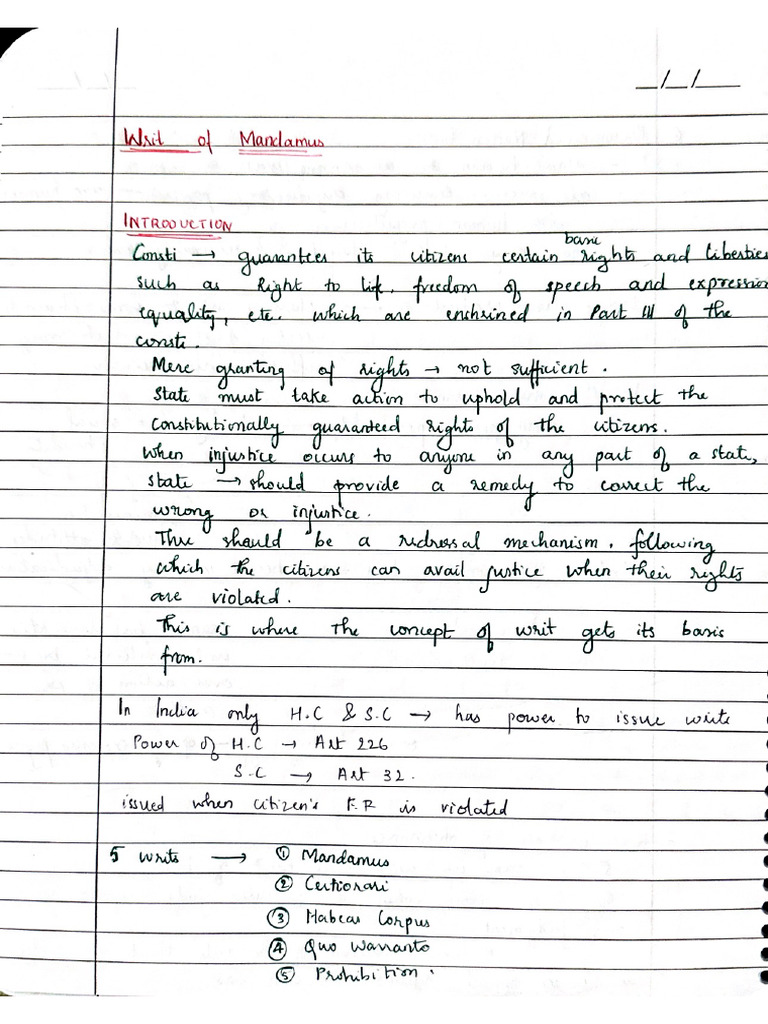 _/_/__
Writ of Mandamus
INTRODUCTION
basic
Consti → guarantees its citizens certain rights and liberties
such as Right to life, freedom of speech and expression
equality, etc. which are enshrined in Part III of the
consti.
Mere granting of rights → not sufficient.
State must take action to uphold and protect the
constitutionally guaranteed rights of the citizens.
When injustice occurs to anyone in any part of a state,
state → should provide a remedy to correct the
wrong or injustice.
Thre should be a redressal mechanism, following
which the citizens can avail justice when their rights
are violated.
This is where the concept of writ gets its basis
from.
In India only H.C & S.C → has power to issue writs
Power of H.C → Art 226
S.C → Art 32.
issued when citizen's F.R is violated
5 writs → ① Mandamus
② Certiorari
③ Habeas Corpus
④ Quo Warranto
⑤ Prohibition.